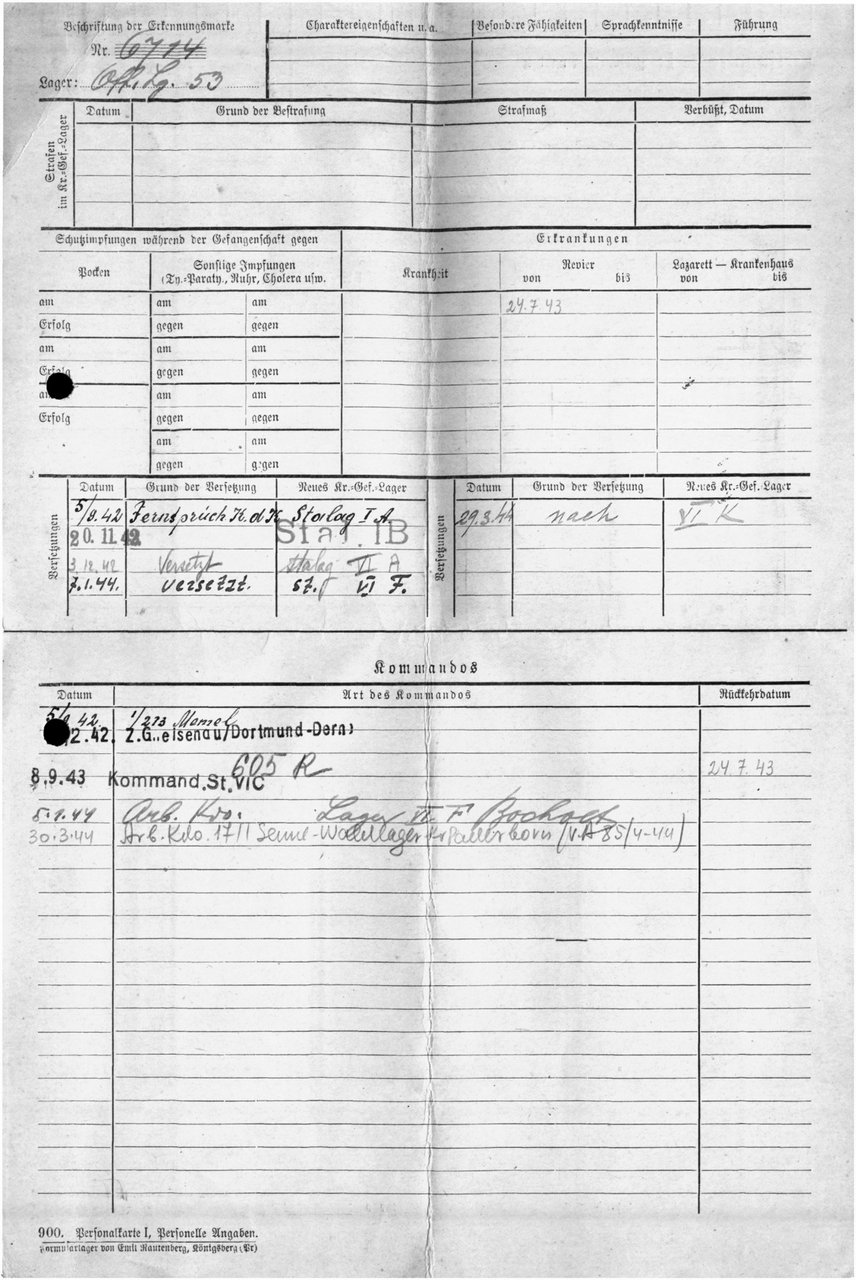 Beschriftung der Erkennungsmarke
Nr. 6714
Lager: Off. Lg. 53
Charaktereigenschaften u. a.
Besondere Fähigkeiten
Sprachkenntnisse
Führung
Strafen im Kr.-Gef.-Lager
Datum
Grund der Bestrafung
Strafmaß
Verbüßt, Datum
Schutzimpfungen während der Gefangenschaft gegen
Erkrankungen
Pocken
Sonstige Impfungen
(Ty.-Paraty., Ruhr, Cholera usw.
Krankheit
Revier
von bis
Lazarett — Krankenhaus
von bis
am am am
24.7.43
Erfolg gegen gegen
am am am
Erfolg gegen gegen
am am am
Erfolg gegen gegen
am am
gegen gegen
Versetzungen
Datum Grund der Versetzung Neues Kr.-Gef.-Lager
5/9.42 Fernspruch K.d.K. Stalag I A.
20. 11. 42 Stal. IB
3.12.42 Versetzt Stalag VI A
7.1.44. versetzt. St. VI F.
Versetzungen
Datum Grund der Versetzung Neues Kr.-Gef. Lager
29.3.44 nach VI K
Kommandos
Datum Art des Kommandos Rückkehrdatum
5/9 42. 1/273 Memel
2.42. Z.G..eisenau/Dortmund-Dern)
605 R 24.7.43
8.9.43 Kommand.St.VIC
8.1.44 Arb. Kdo. Lager VI F Bocholt
30.3.44 Arb. Kdo. 17/1 Senne-Waldlager Kr Paderborn (V.A 85/4-44)
900. Personalkarte I, Personelle Angaben.
Formularlager von Emil Rautenberg, Königsberg (Pr)